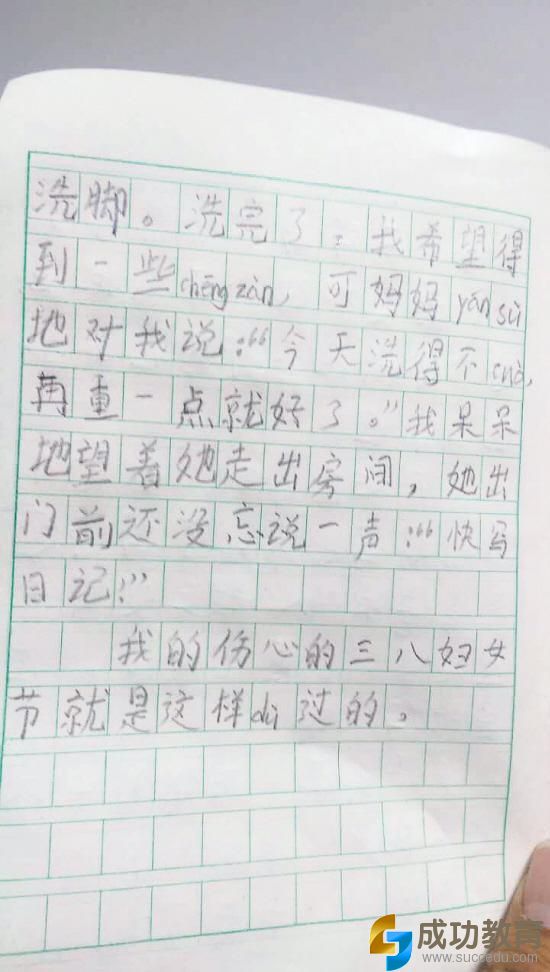 洗脚。洗完了,我希望得
到一些chēngzàn,可妈妈yánsù
地对我说:“今天洗得不cuò,
再重一点就好了。”我呆呆
地望着她走出房间,她出
门前还没忘说一声:“快写
日记!”
我的伤心的三八妇女
节就是这样dù过的。
成功教育
www.succedu.com